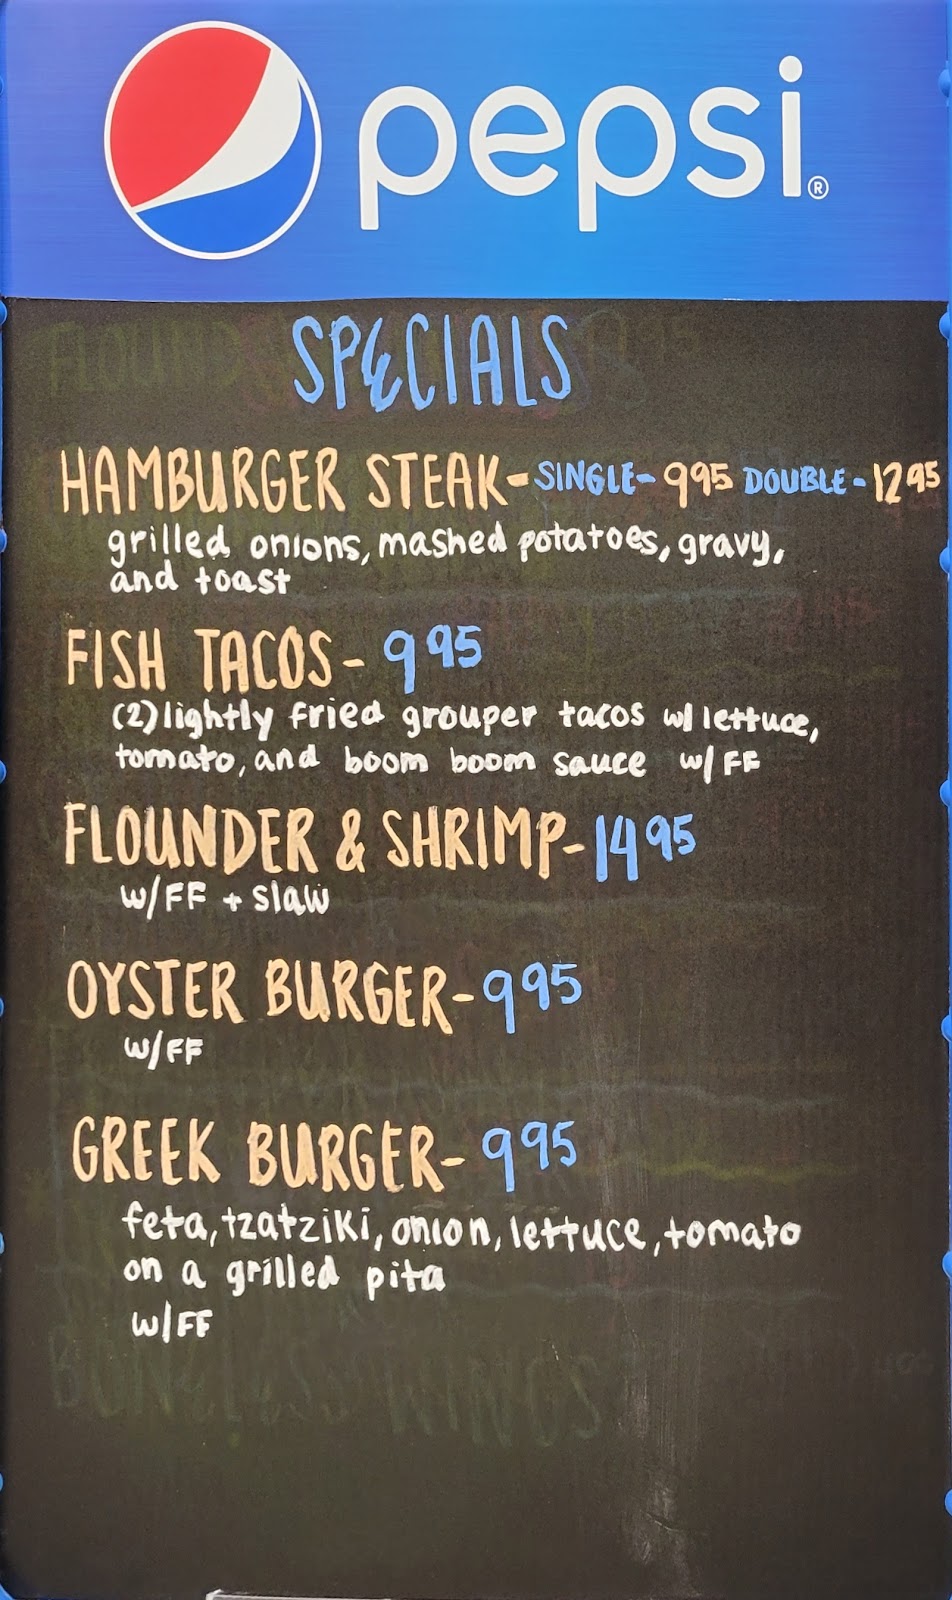 pepsi®
SPECIALS
HAMBURGER STEAK- SINGLE- 995 DOUBLE- 1295
grilled onions, mashed potatoes, gravy,
and toast
FISH TACOS- 995
(2) lightly fried grouper tacos w/ lettuce,
tomato, and boom boom sauce w/ FF
FLOUNDER & SHRIMP- 1495
w/FF + slaw
OYSTER BURGER- 995
w/FF
GREEK BURGER- 995
feta, tzatziki, onion, lettuce, tomato
on a grilled pita
w/FF